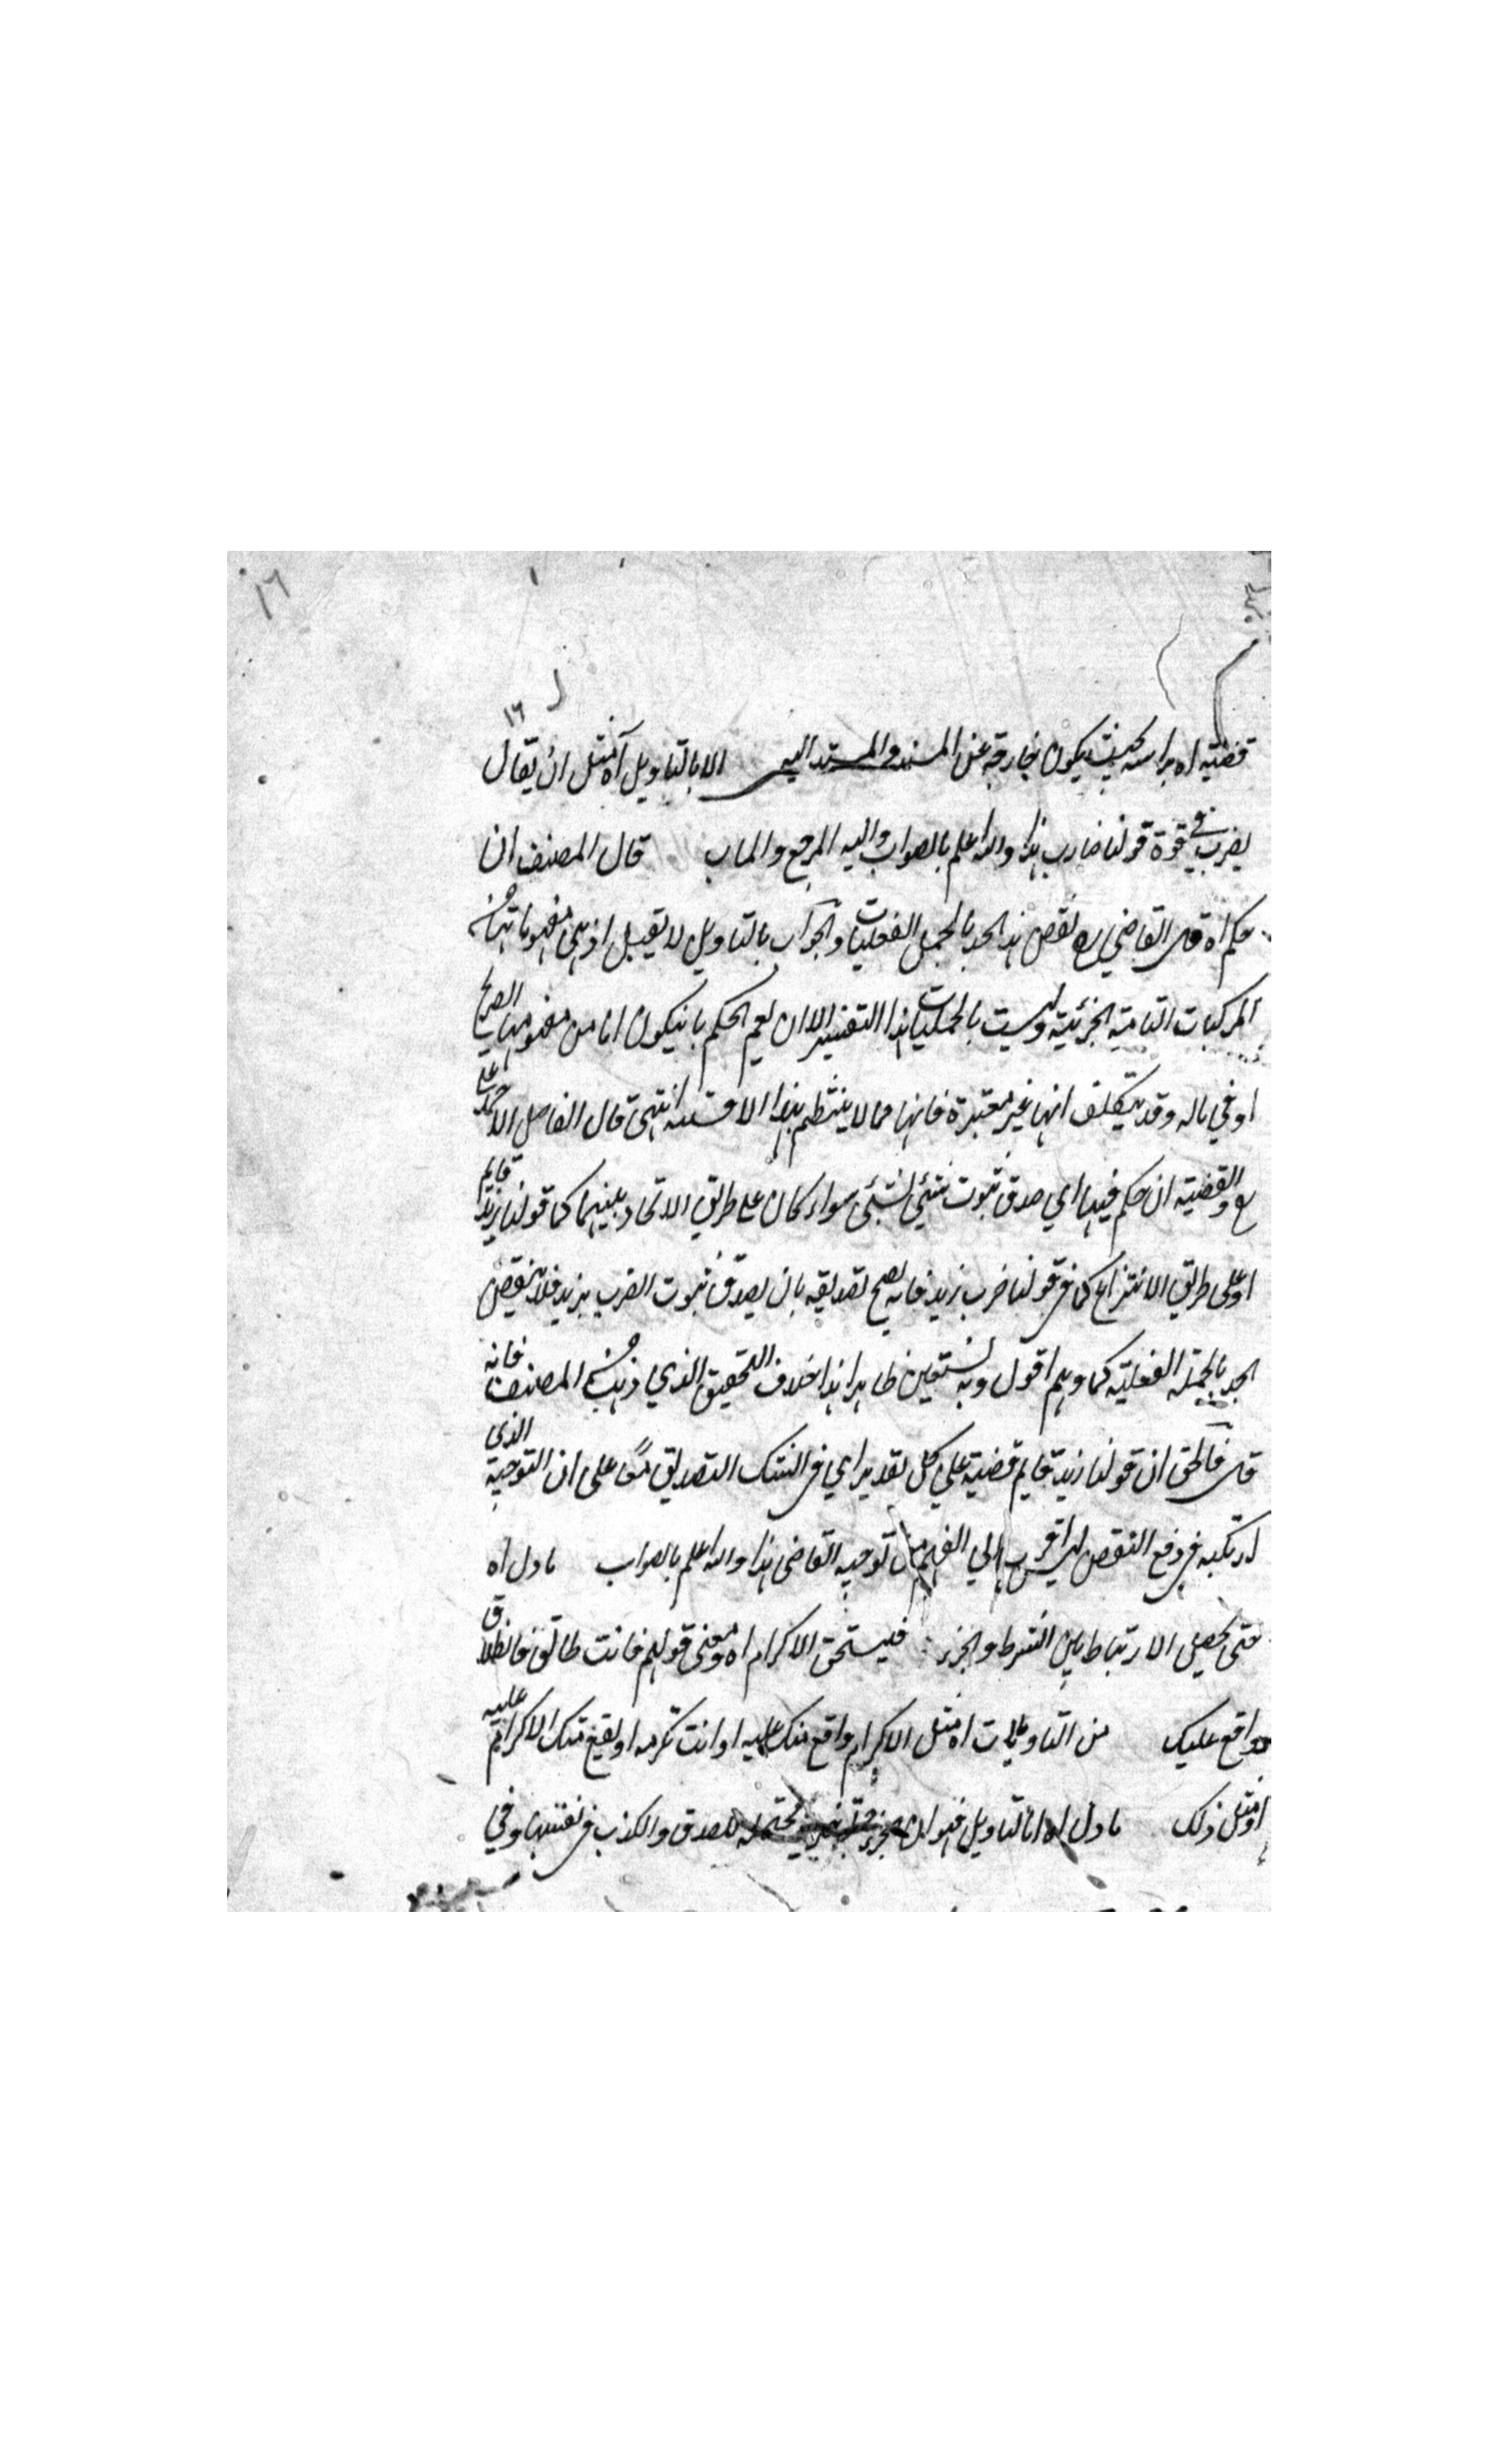 ١٦
١٦
قضية اه براسه بحيث يكون خارجة عن المسند والمسند اليه الا بالتاويل آه مثل ان يقال
يضرب في قوة قولنا ضارب هذا والله اعلم بالصواب واليه المرجع والماب قال المصنف ان
حكم اه قال القاضي نقض هذا الحد بالجمل الفعليات والجواب بالتاويل لا يقبل اذ هي مفهوماتها من
المركبات التامة الخبرية وليست بالحمليات بهذا التفسير الا ان يعم الحكم بان يكون اما من مفهومها الصريح
او في ماله وقد يتكلف انها غير معتبرة فانها مما لا ينتظم بهذا انتهى قال الفاضل الاحمد علي
والقضية ان حكم فيها اي صدق ثبوت شئي لشئي سواء كان على طريق الاتحاد بينهما كما قولنا زيد قايم
او على طريق الانتزاع كما في قولنا ضرب زيد فانه يصح تصديقه بان يصدق ثبوت الضرب بزيد فلا ينتقض
الحد بالجملة الفعلية كما وهم اقول وبه نستعين ظاهر هذا خلاف التحقيق الذي ذهب المصنف فانه
قال فالحق ان قولنا زيد قايم قضية على كل تقدير اي في الشك التصديق معًا على ان التوجيه الذي
ارتكبه في دفع النقض ليس اقرب الي الفهم من توجيه القاضي هذا والله اعلم بالصواب ماول اه
حتى يحصل الارتباط بين الشرط والجزء فيستحق الاكرام اه ومعنى قولهم فانت طالق فالطلاق
واقع عليك من التاويلات اه مثل الاكرام واقع منك عليه او انت تكرمه او يقع منك الاكرام عليه
او مثل ذلك ماول اه اما التاويل فهو ان محتملة للصدق والكذب في نفسها وفي